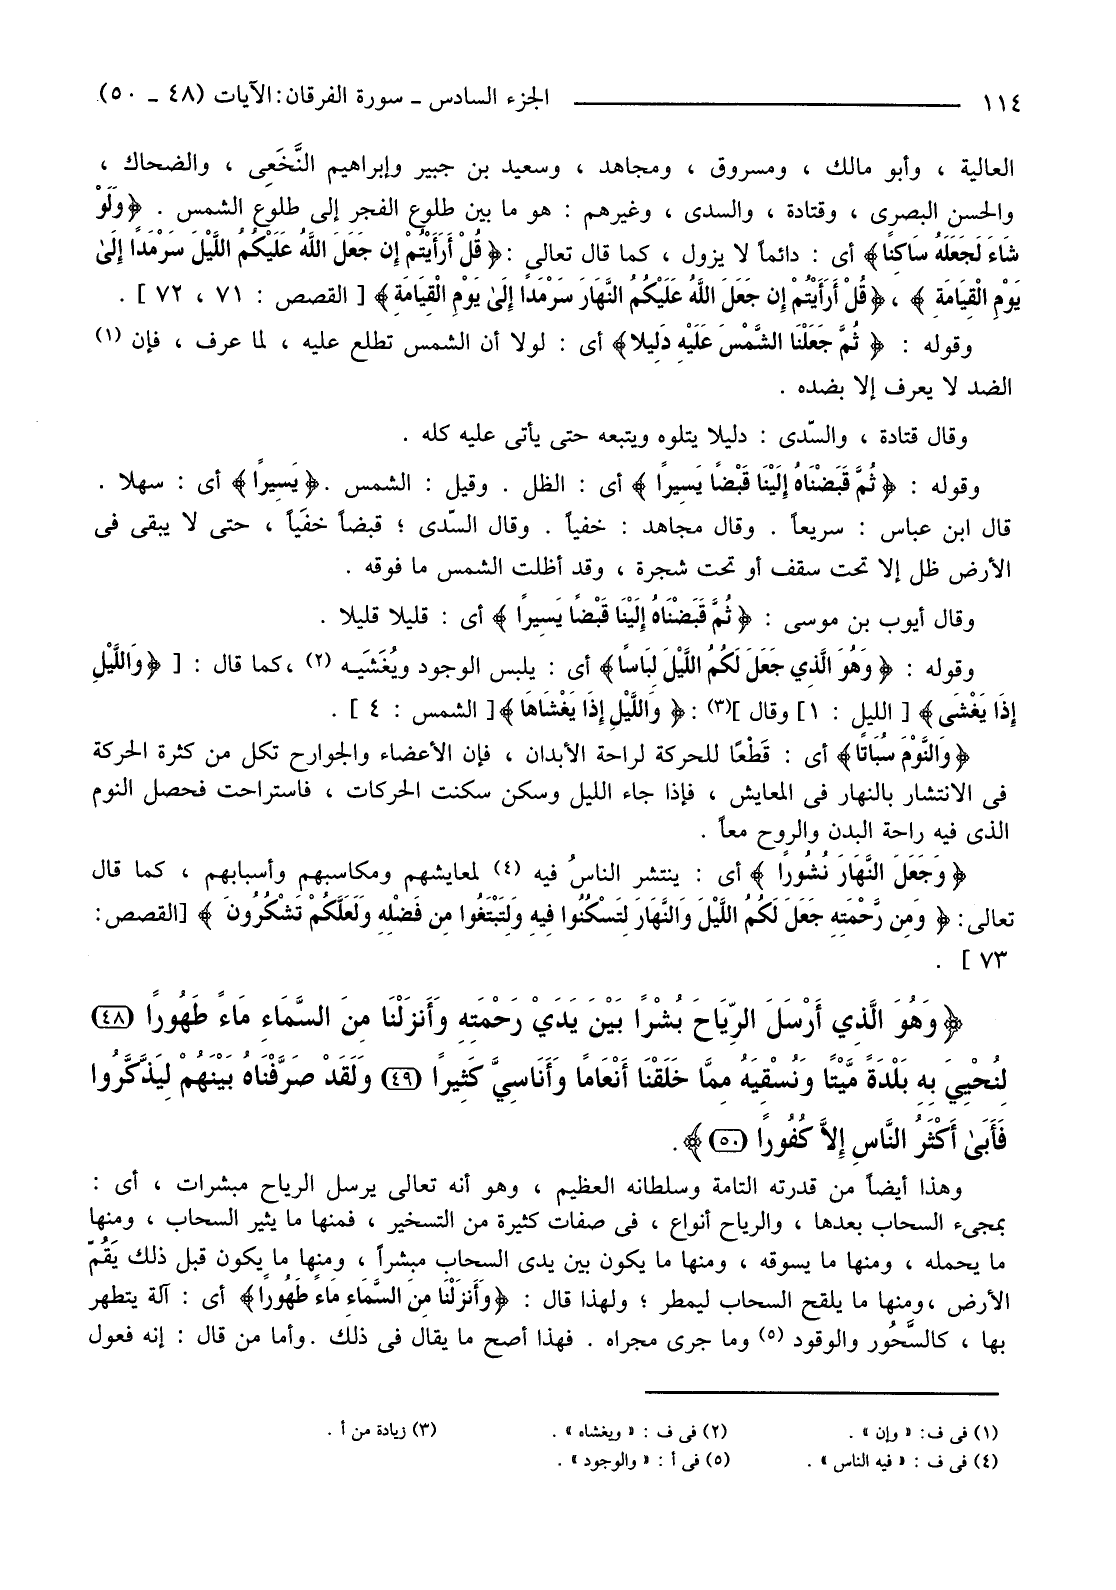 ١١٤ ـــــــــــــــــــــــــــــ الجزء السادس - سورة الفرقان: الآيات (٤٨ - ٥٠)
العالية ، وأبو مالك ، ومسروق ، ومجاهد ، وسعيد بن جبير وإبراهيم النَّخَعِى ، والضحاك ،
والحسن البصرى ، وقتادة ، والسدى ، وغيرهم : هو ما بين طلوع الفجر إلى طلوع الشمس . ﴿ وَلَوْ
شَاءَ لَجَعَلَهُ سَاكِنًا﴾ أى : دائماً لا يزول ، كما قال تعالى :﴿ قُلْ أَرَأَيْتُمْ إِن جَعَلَ اللَّهُ عَلَيْكُمُ اللَّيْلَ سَرْمَدًا إِلَىٰ
يَوْمِ الْقِيَامَةِ ﴾ ، ﴿قُلْ أَرَأَيْتُمْ إِن جَعَلَ اللَّهُ عَلَيْكُمُ النَّهَارَ سَرْمَدًا إِلَىٰ يَوْمِ الْقِيَامَةِ﴾ [ القصص : ٧١ ، ٧٢ ] .
وقوله : ﴿ ثُمَّ جَعَلْنَا الشَّمْسَ عَلَيْهِ دَلِيلا﴾ أى : لولا أن الشمس تطلع عليه ، لما عرف ، فإن (١)
الضد لا يعرف إلا بضده .
وقال قتادة ، والسّدى : دليلا يتلوه ويتبعه حتى يأتى عليه كله .
وقوله : ﴿ ثُمَّ قَبَضْنَاهُ إِلَيْنَا قَبْضًا يَسِيرًا ﴾ أى : الظل . وقيل : الشمس .﴿ يَسِيرًا ﴾ أى : سهلا .
قال ابن عباس : سريعاً . وقال مجاهد : خفياً . وقال السّدى ؛ قبضاً خفَياً ، حتى لا يبقى فى
الأرض ظل إلا تحت سقف أو تحت شجرة ، وقد أظلت الشمس ما فوقه .
وقال أيوب بن موسى : ﴿ ثُمَّ قَبَضْنَاهُ إِلَيْنَا قَبْضًا يَسِيرًا ﴾ أى : قليلا قليلا .
وقوله : ﴿ وَهُوَ الَّذِي جَعَلَ لَكُمُ اللَّيْلَ لِبَاسًا﴾ أى : يلبس الوجود ويُغَشيَه (٢) ،كما قال : [ ﴿ وَاللَّيْلِ
إِذَا يَغْشَى ﴾ [ الليل : ١] وقال ](٣) :﴿ وَاللَّيْلِ إِذَا يَغْشَاهَا ﴾[ الشمس : ٤ ] .
﴿ وَالنَّوْمَ سُبَاتًا﴾ أى : قَطْعًا للحركة لراحة الأبدان ، فإن الأعضاء والجوارح تكل من كثرة الحركة
فى الانتشار بالنهار فى المعايش ، فإذا جاء الليل وسكن سكنت الحركات ، فاستراحت فحصل النوم
الذى فيه راحة البدن والروح معاً .
﴿ وَجَعَلَ النَّهَارَ نُشُورًا ﴾ أى : ينتشر الناسُ فيه (٤) لمعايشهم ومكاسبهم وأسبابهم ، كما قال
تعالى: ﴿ وَمِن رَّحْمَتِهِ جَعَلَ لَكُمُ اللَّيْلَ وَالنَّهَارَ لِتَسْكُنُوا فِيهِ وَلِتَبْتَغُوا مِن فَضْلِهِ وَلَعَلَّكُمْ تَشْكُرُونَ ﴾ [القصص:
٧٣ ] .
﴿ وَهُوَ الَّذِي أَرْسَلَ الرِّيَاحَ بُشْرًا بَيْنَ يَدَيْ رَحْمَتِهِ وَأَنزَلْنَا مِنَ السَّمَاءِ مَاءً طَهُورًا (٤٨)
لِنُحْيِيَ بِهِ بَلْدَةً مَّيْتًا وَنُسْقِيَهُ مِمَّا خَلَقْنَا أَنْعَامًا وَأَنَاسِيَّ كَثِيرًا (٤٩) وَلَقَدْ صَرَّفْنَاهُ بَيْنَهُمْ لِيَذَّكَّرُوا
فَأَبَىٰ أَكْثَرُ النَّاسِ إِلاَّ كُفُورًا (٥٠) ﴾.
وهذا أيضاً من قدرته التامة وسلطانه العظيم ، وهو أنه تعالى يرسل الرياح مبشرات ، أى :
بمجىء السحاب بعدها ، والرياح أنواع ، فى صفات كثيرة من التسخير ، فمنها ما يثير السحاب ، ومنها
ما يحمله ، ومنها ما يسوقه ، ومنها ما يكون بين يدى السحاب مبشراً ، ومنها ما يكون قبل ذلك يَقُمّ
الأرض ،ومنها ما يلقح السحاب ليمطر ؛ ولهذا قال : ﴿ وَأَنزَلْنَا مِنَ السَّمَاءِ مَاءً طَهُورًا﴾ أى : آلة يتطهر
بها ، كالسَّحُور والوقود (٥) وما جرى مجراه . فهذا أصح ما يقال فى ذلك .وأما من قال : إنه فعول
(١) فى ف: « وإن » . (٢) فى ف : « ويغشاه » . (٣) زيادة من أ .
(٤) فى ف : « فيه الناس » . (٥) فى أ : « والوجود » .